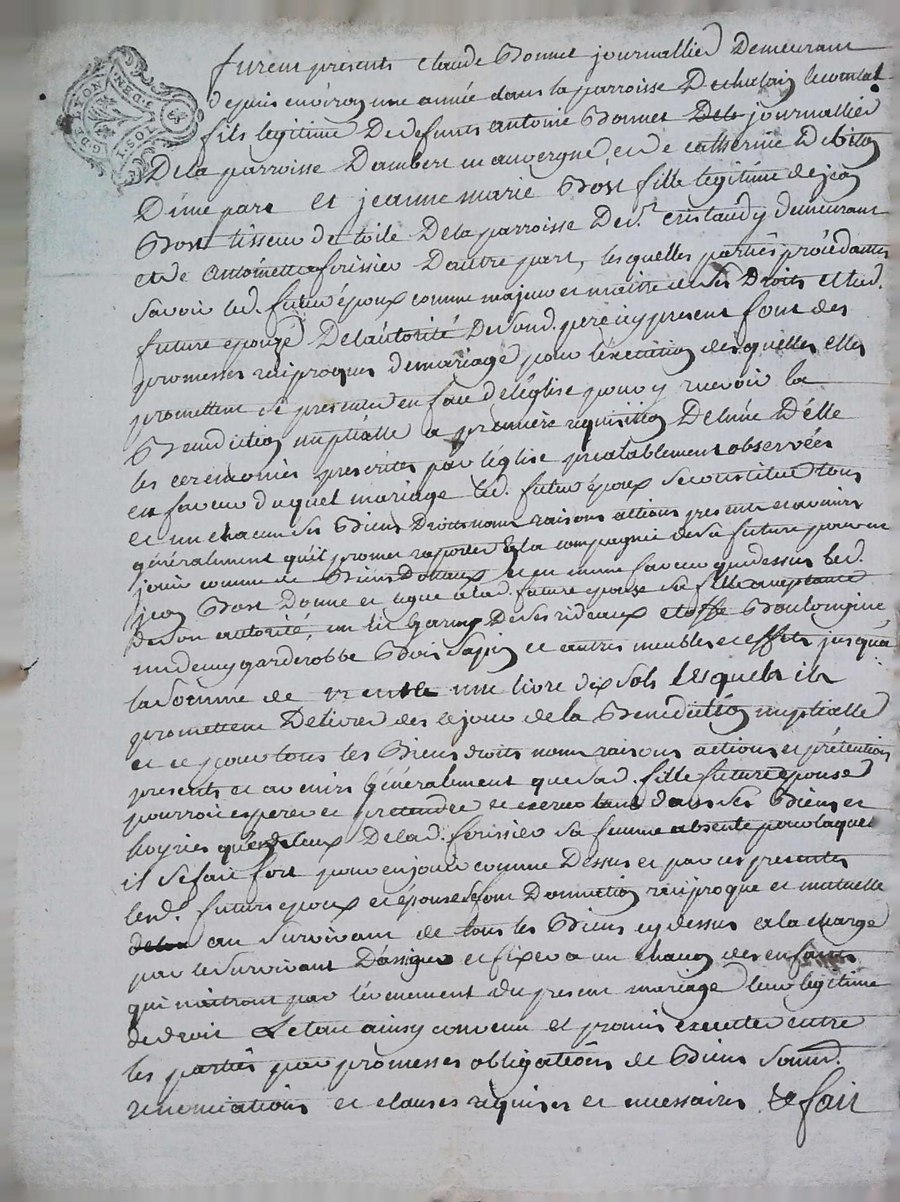 G. DE LYON
furent presents claude Bonnet journallier Demeurant
depuis environ une année dans la parroisse De chalain lecomtal
fils legitime De defunts antoine Bonnet journallier
De la parroisse Dambert en auvergne, et de catherine
D'une part et jeanne marie Bost fille legitime de jean
Bost tisseur de toile De la parroisse De st demeurant
et de antoinette forissier D'autre part, les quelles parties procedantes
savoir led. futur époux comme majeur et maitre de ses Droits et lad.
future epouze De l'autorité De sond. pere icy present font des
promesses reciproques de mariage pour l'execution des quelles elles
promettent se presenter en face de l'église pour y recevoir la
Benediction nuptialle a premiere requisition De l'une D'elle
les ceremonies prescrites par l'église prealablement observées
en faveur du quel mariage led. futur époux se constitue tous
et un chacun ses Biens Droits noms raisons actions presents et avenirs
généralement qu'il promet raporter En la compagnie de sa future pour en
jouir comme de Biens Dotaux et en meme faveur que dessus led.
jean Bost Donne et legue a lad. future epouse sa fille acceptante
de son autorité, un lit garny De ses rideaux etoffe Boulongine
un demy garderobbe Bois sapin et autres meubles et effets jusqu'a
la somme de une livre dix sols Lesquels ils
promettent Delivrer des le jour de la Benediction nuptialle
et ce pour tous les Biens droits noms raisons actions et prétentions
presents et avenirs Généralement que sad. fille future epouse
pourroit esperer et pretendre et exercer tant dans ses Biens et
hoyries qu'en ceux De lad. forissier sa femme absente pour laquelle
il se fait fort pour en jouir comme Dessus et par ces presentes
lesd. futurs epoux et épouse se font Donnation reciproque et mutuelle
au survivant de tous les Biens cy dessus a la charge
par le survivant D'assigner et fixer a un chacun des enfants
qui naitront par l'evenement du present mariage leur legitime
de droit L'etant ainsy convenu et promis executer entre
les parties par promesses obligations de Biens soumd.
renonciations et clauses requises et necessaires fait